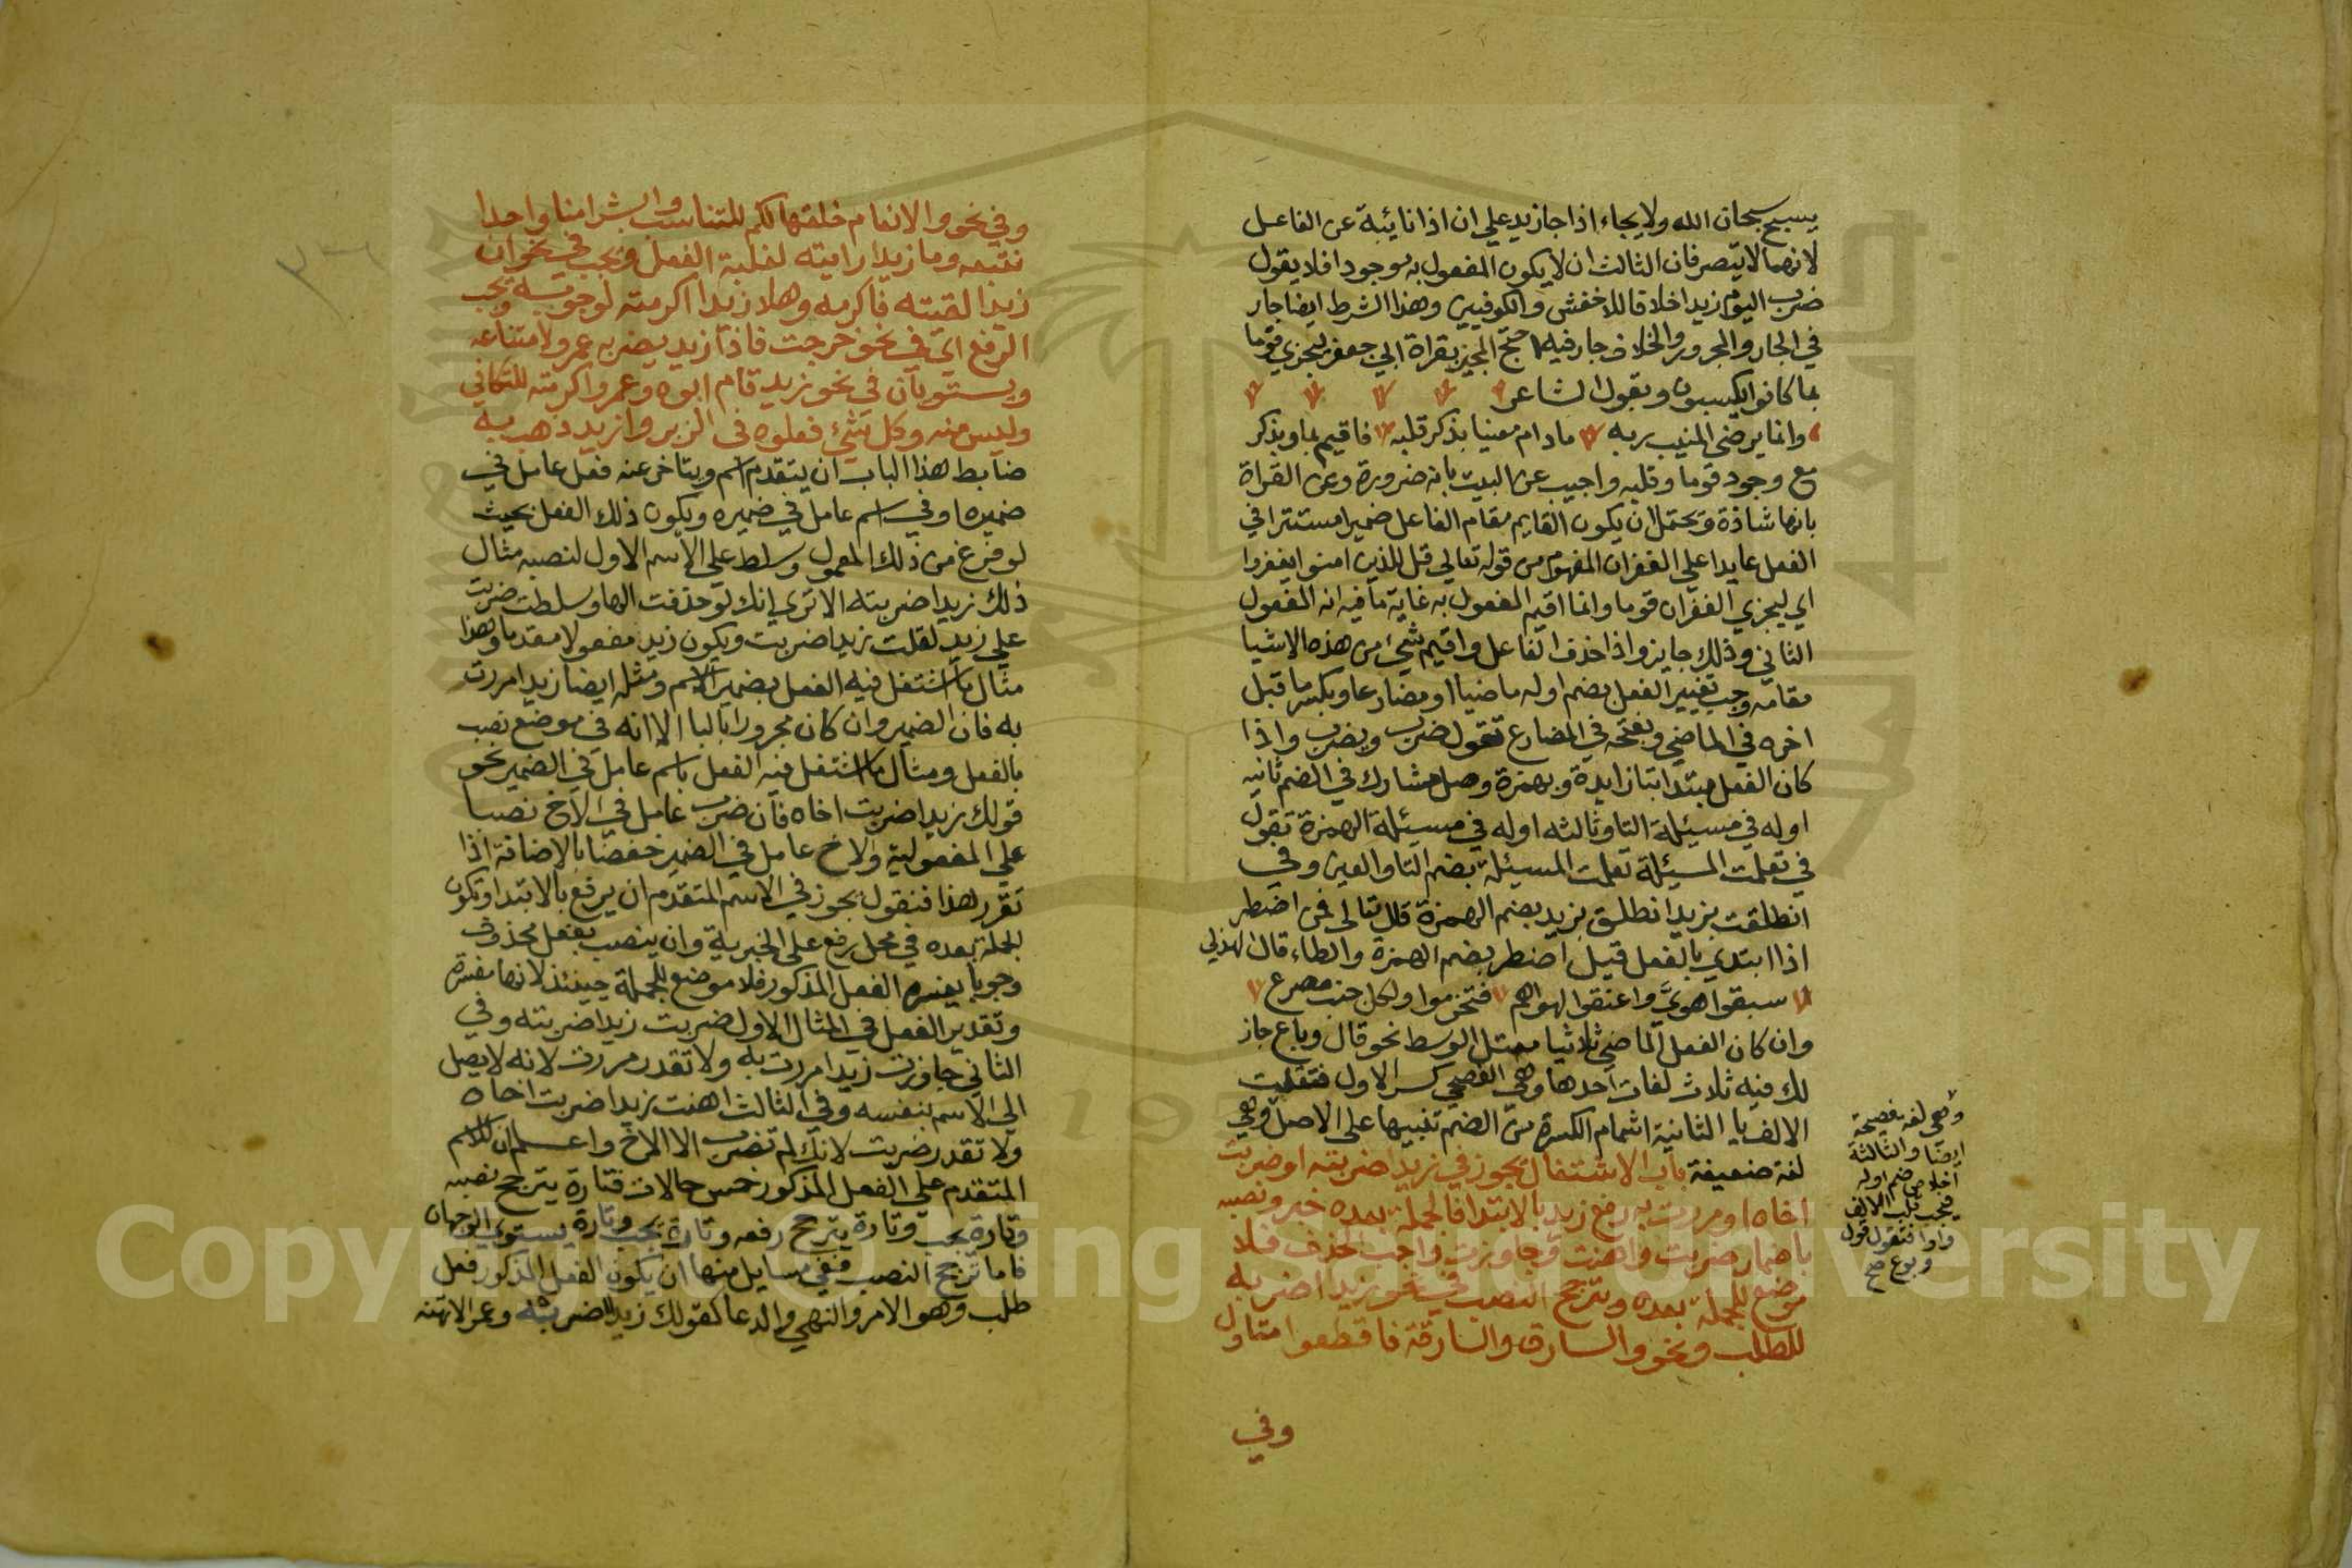 يسبح سبحان الله ولا يجاء اذا جا زيد علي ان اذا نائبة عن الفاعل
لانهما لا يتصرفان الثالث ان لا يكون المفعول به موجودا فلا يقول
ضرب اليوم زيدا خلافا للاخفش والكوفيين وهذا الشرط ايضا جار
في الجار والمجرور والخلاف جار فيه احتج المجيز بقراة ابي جعفر ليجزي قوما
بما كانوا يكسبون وبقول الشاعر
وانما يرضي المنيب ربه مادام معنيا بذكر قلبه فاقيم بما وبذكر
مع وجود قوما وقلبه واجيب عن البيت بانه ضرورة وعن القراة
بانها شاذة ويحتمل ان يكون القايم مقام الفاعل ضميرا مستترا في
الفعل عايدا علي الغفران المفهوم من قوله تعالي قل للذين امنوا يغفروا
اي ليجزي الغفران قوما وانما اقيم المفعول به غاية ما فيه انه المفعول
الثاني وذلك جايز واذا حذف الفاعل واقيم شيء من هذه الاشيا
مقامه وجب تغيير الفعل بضم اوله ماضيا او مضارعا وبكسر ما قبل
اخره في الماضي وبفتحه في المضارع تقول ضرب ويضرب واذا
كان الفعل مبتدا بتا زايدة وبهمزة وصل مشارك في الضم ثانيه
اوله في مسيئلة التا وثالثه اوله في مسيئلة الهمزة تقول
في تعلمت المسيئلة تعلمت المسيئلة بضم التا والعين وفي
انطلقت بزيد انطلق بزيد بضم الهمزة قال تعالي فمن اضطر
اذا ابتدي بالفعل قيل اضطر بضم الهمزة والطاء قال الهذلي
سبقوا هوي واعنقوا لهواهم فتخرموا ولكل جنب مصرع
وان كان الفعل الماضي ثلاثيا معتل الوسط نحو قال وباع جاز
لك فيه ثلاث لغات احدها وهي الفصحي كسر الاول فتقلبت
الالف يا الثانية اشمام الكسرة من الضم تنبيها علي الاصل وهي
لغة ضعيفة باب الاشتغال يجوز في زيدا ضربته او ضربت
اخاه او مررت به رفع زيد بالابتدا فالجملة بعده خبر ونصبه
باضمار ضربت واهنت وجاوزت واجب الحذف فلا
موضع للجملة بعده ويترجح النصب في نحو زيدا اضربه
للطلب ونحو والسارق والسارقة فاقطعوا متاول
وفي
وهي لغة فصيحة
ايضا والثالثة
اخلاص ضم اوله
فيجب قلب الالف
واوا فتقول قول
وبوع صح
وفي نحو والانعام خلقها لكم للتناسب وابشرا منا واحدا
نتبعه وما زيدا رايته لغلبة الفعل ويجب في نحو ان
زيدا لقيته فاكرمه وهلا زيدا اكرمته لوجوبه ويجب
الرفع اي في نحو خرجت فاذا زيد يضربه عمرو لامتناعه
ويستويان في نحو زيد قام ابوه وعمرو اكرمته للتكافي
وليس منه وكل شيء فعلوه في الزبر وازيد ذهب به
ضابط هذا الباب ان يتقدم اسم ويتاخر عنه فعل عامل في
ضميره او في اسم عامل في ضميره ويكون ذلك الفعل بحيث
لو فرغ من ذلك المعمول وسلط علي الاسم الاول لنصبه مثال
ذلك زيدا ضربته الا تري انك لو حذفت الها وسلطت ضربت
علي زيد لقلت زيدا ضربت ويكون زيد مفعولا مقدما وهذا
مثال ما اشتغل فيه الفعل بضمير الاسم ومثله ايضا زيدا مررت
به فان الضمير وان كان مجرورا بالبا الا انه في موضع نصب
بالفعل ومثال ما اشتغل فيه الفعل باسم عامل في الضمير نحو
قولك زيدا ضربت اخاه فان ضرب عامل في الاخ نصبا
علي المفعولية والاخ عامل في الضمير خفضا بالاضافة اذا
تقرر هذا فنقول يجوز في الاسم المتقدم ان يرفع بالابتدا وتكون
الجملة بعده في محل رفع علي الخبرية وان ينصب بفعل محذوف
وجوبا يفسره الفعل المذكور فلا موضع للجملة حينئذ لانها مفسرة
وتقدير الفعل في المثال الاول ضربت زيدا ضربته وفي
الثاني جاوزت زيدا مررت به ولا تقدر مررت لانه لا يصل
الي الاسم بنفسه وفي الثالث اهنت زيدا ضربت اخاه
ولا تقدر ضربت لانك لم تضرب الا الاخ واعلم ان للاسم
المتقدم علي الفعل المذكور خمس حالات فتارة يترجح نصبه
وتارة يجب وتارة يترجح رفعه وتارة يجب وتارة يستوي الوجهان
فاما ترجح النصب ففي مسايل منها ان يكون الفعل المذكور فعل
طلب وهو الامر والنهي والدعا كقولك زيدا اضربه وعمرا لا تهنه